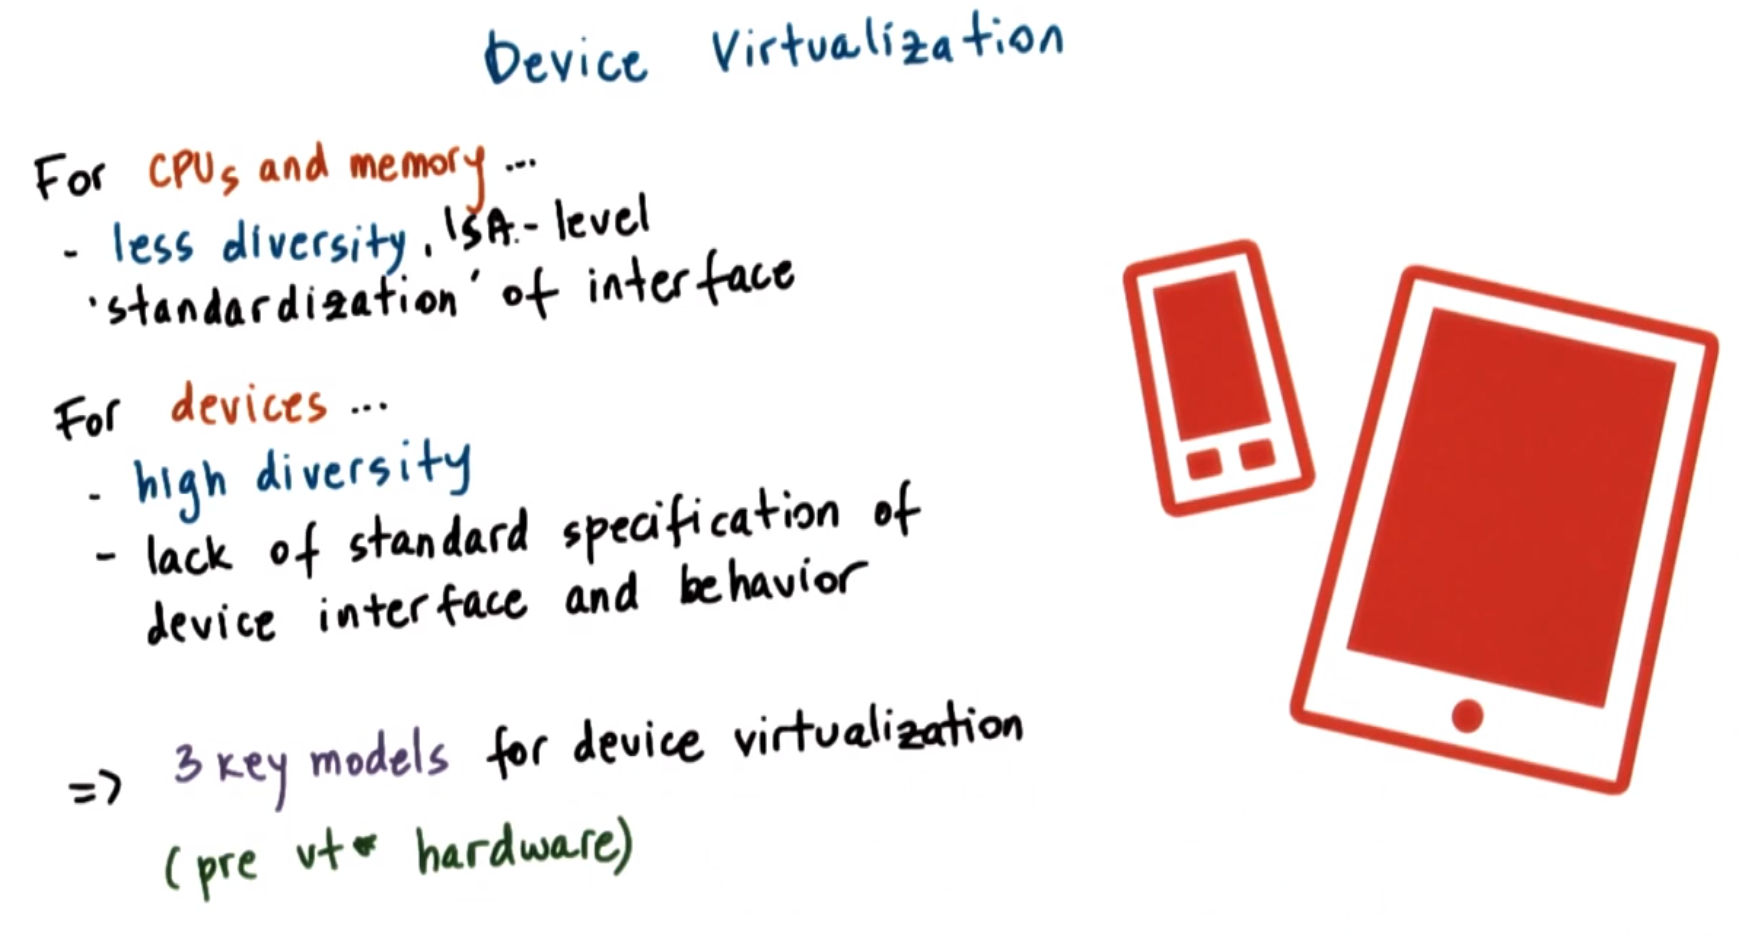 Device Virtualization
For CPUs and memory ...
- less diversity, ISA-level
'standardization' of interface
For devices ...
- high diversity
- lack of standard specification of
device interface and behavior
=> 3 key models for device virtualization
(pre vt* hardware)